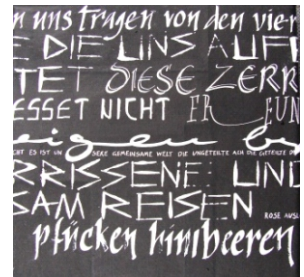 n uns tragen von den vier
E DIE UNS AUF
TET DIESE ZERR
ESSET NICHT ER FUN
eige
CHT ES IST UN SERE GEMEINSAME WELT DIE UNGETEILTE ACH DIE GETEILTE
RRISSENE UND
SAM REISEN
ROSE AUSL
pflücken himbeeren